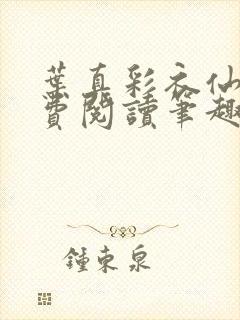 葉真彩衣仙
費閱讀筆趣
鍾束泉